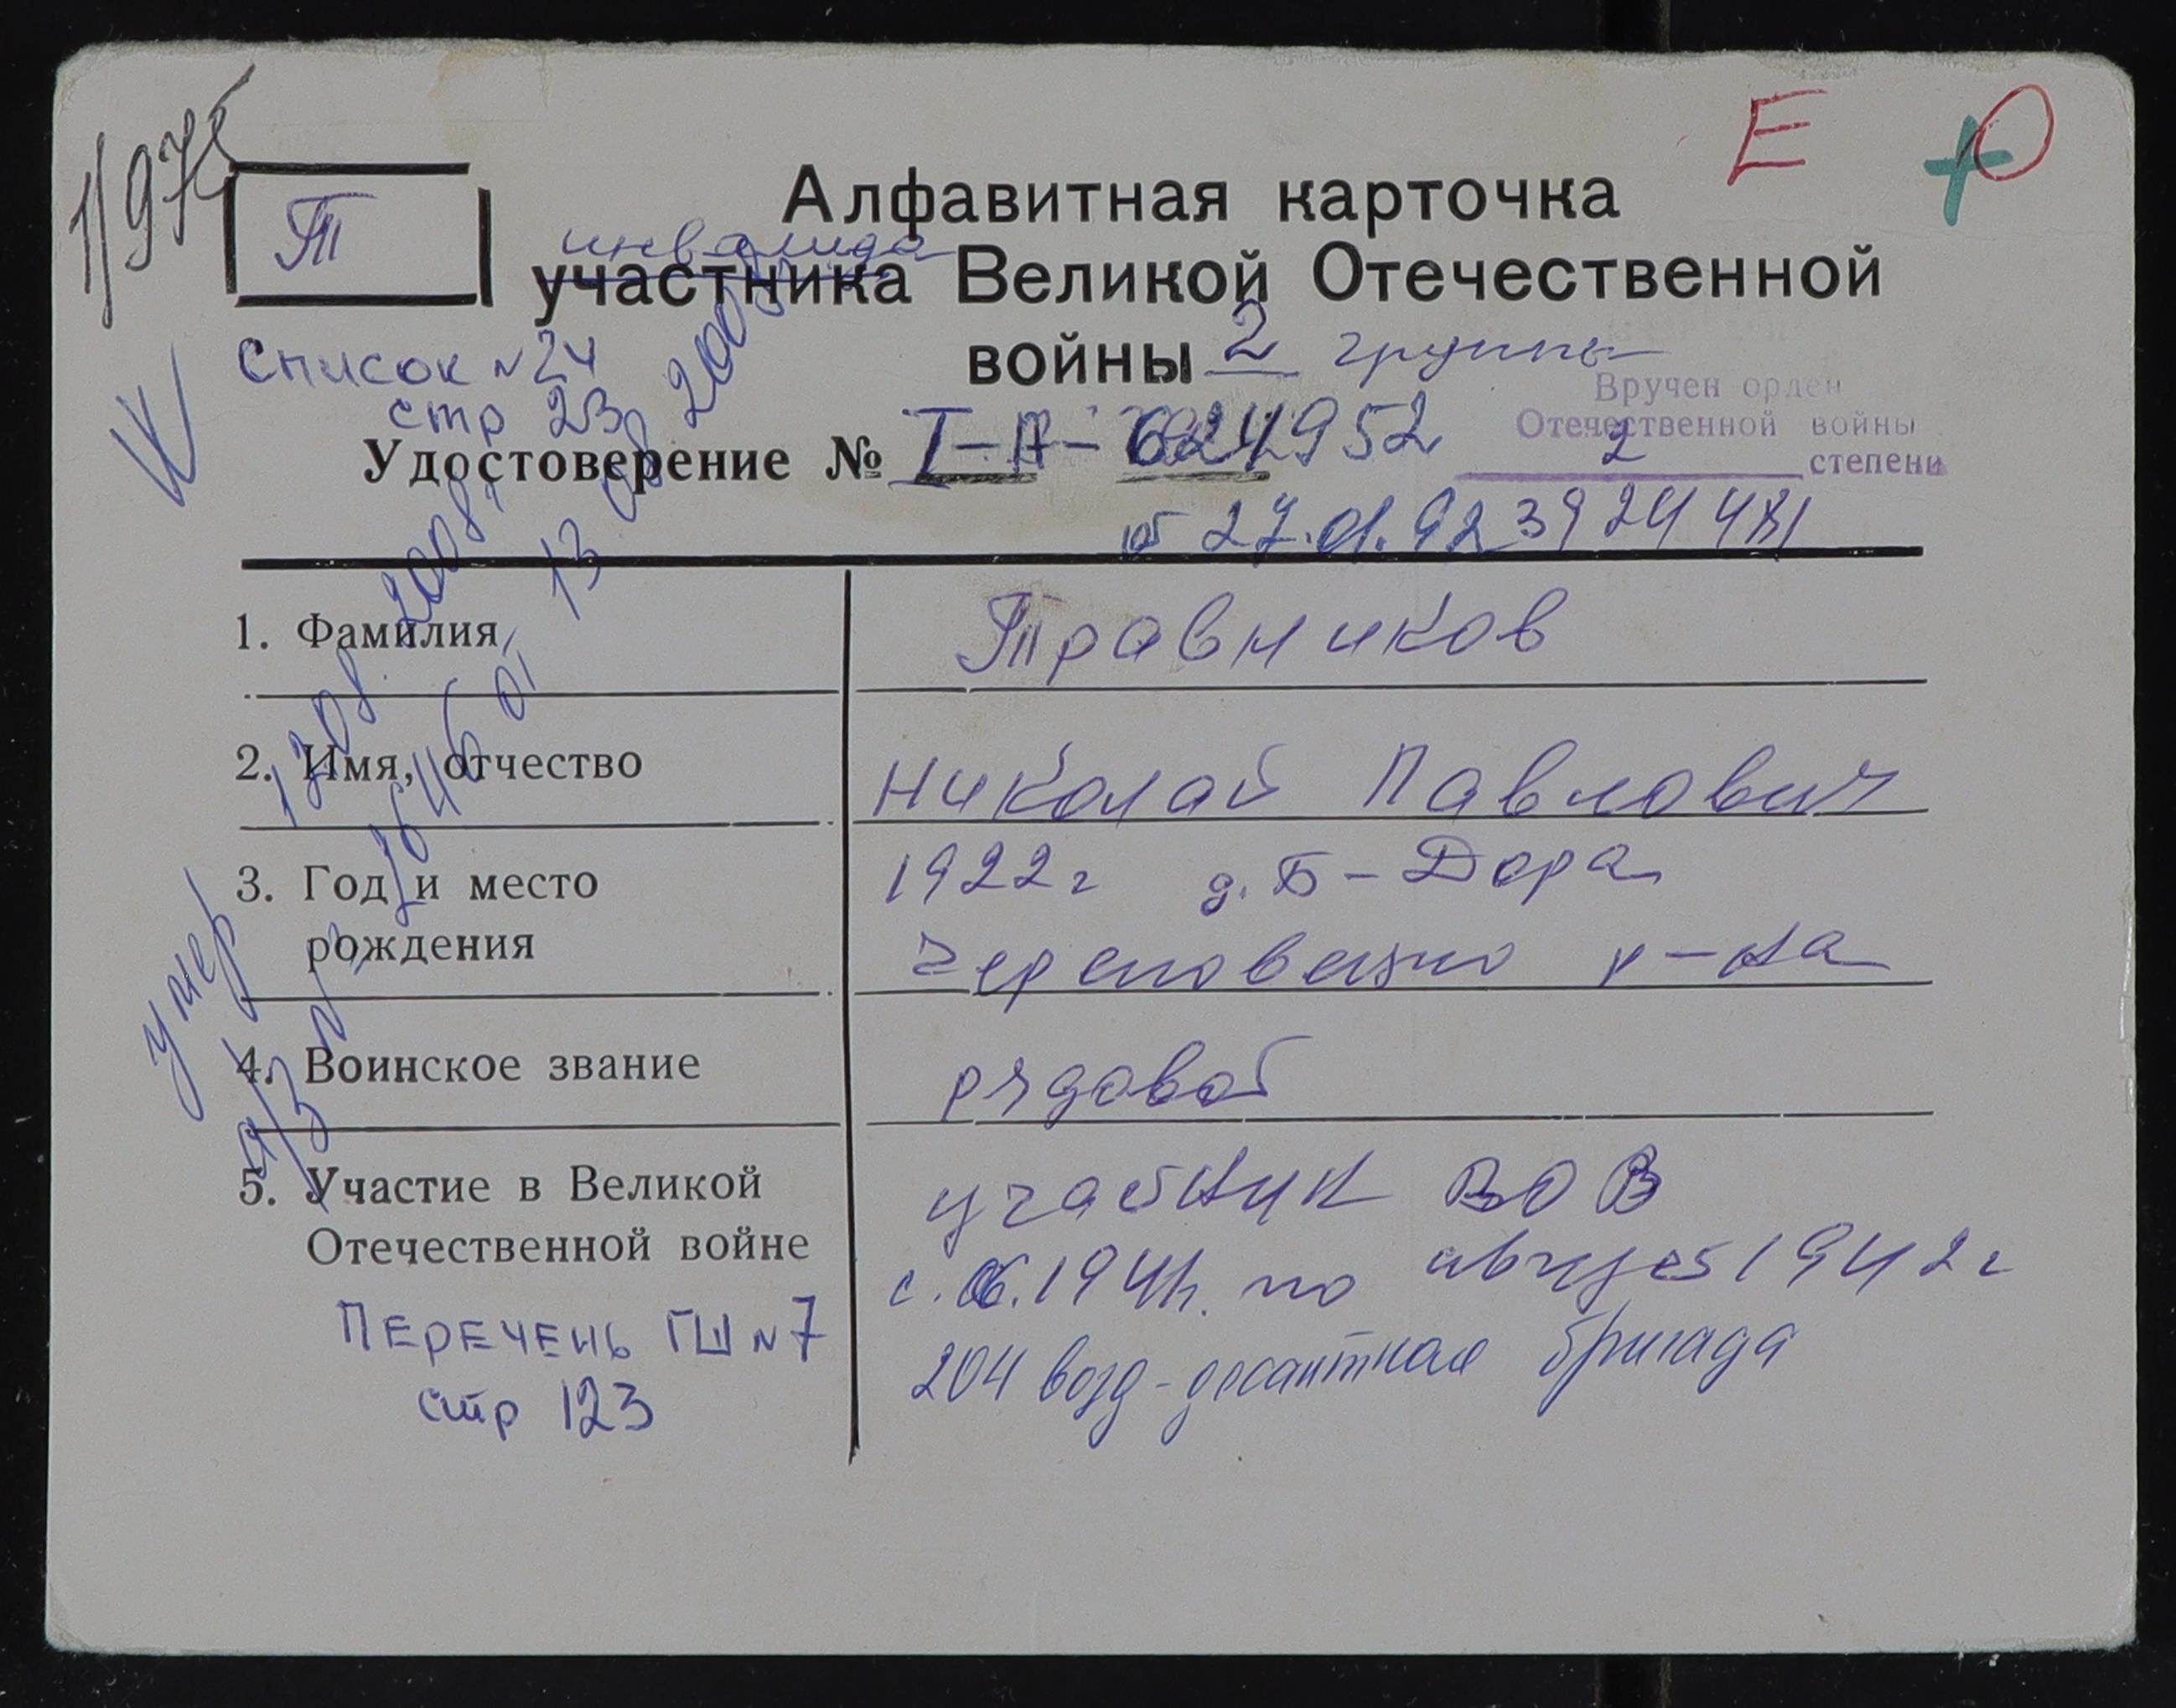 Е О
Алфавитная карточка
Т
инвалида
участника Великой Отечественной
войны 2 группы
Список N 24
стр 23
Вручен орден
Отечественной войны
2
степени
Удостоверение № I-А- 952
от 27.01.92
1. Фамилия
Травников
2. Имя, отчество
Николай Павлович
3. Год и место
рождения
1922г д. Б-Дора
Череповецкого р-на
4. Воинское звание
рядовой
5. Участие в Великой
Отечественной войне
участник ВОВ
с. 06.1941г. по август 1942г
204 возд-десантная бригада
Перечень ГШ N 7
стр 123
умер